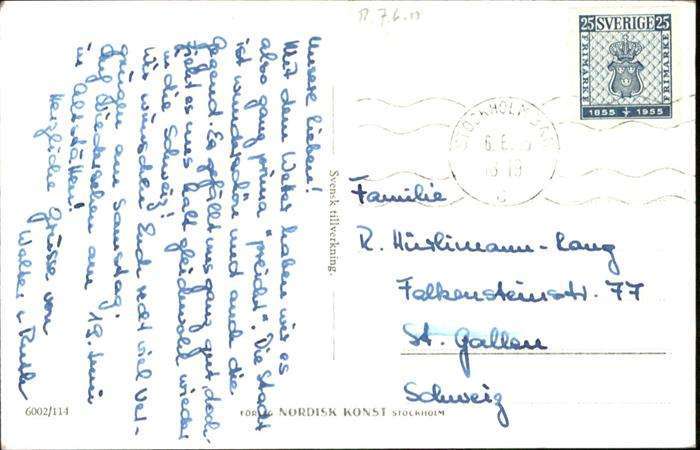 Unsere lieben!
Mit dem Wetter haben wir es
also ganz prima "preicht". Die Stadt
ist wunderschön und auch die
Gegend. Es gefällt uns ganz gut, doch
zieht es uns halt gleichwohl wieder
in die Schweiz!
Wir wünschen Euch recht viel Ver-
gnügen am Samstag.
Auf Wiedersehen am 19. Juni
in Altstätten!
Herzliche Grüsse von
Walter u. Ruth
6002/114
Svensk tillverkning.
FÖRLAG NORDISK KONST STOCKHOLM
7.6.
25 SVERIGE 25
FRIMÄRKE
FRIMÄRKE
1855 1955
STOCKHOLM
6.6.
19
Familie
R. Hürlimann-Lang
Falkensteinstr. 77
St. Gallen
Schweiz